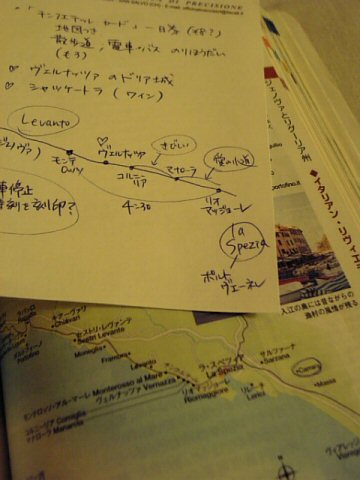 DI PRECISIONE
「チンクエテッレ カード」一日券
地図つき
散歩道, 電車・バス のりほうだい
♡ ヴェルナッツァのドリア城
♡ シャッケートラ (ワイン)
Levanto
モンテ
ヴェルナッツァ
コルニリア
さびしい
マナローラ
愛の小道
リオ
マッジョーレ
停止
時刻を刻印?
La
Spezia
ポルト
ヴェーネレ
ジェノヴァとリグーリア州
◆イタリアン・リヴィエ
入江の奥には昔ながらの
漁村の風情が残る
キアーヴァリ
Chiavari
セストリ・レヴァンテ
Sestri Levante
Moneglia
Framura
レヴァント
Levanto
モンテロッソ・アル・マーレ Monterosso al Mare
ヴェルナッツァ Vernazza
コルニーリア Corniglia
マナローラ Manarola
リオマッジョーレ
Riomaggiore
ラ・スペツィア
La Spezia
サルツァーナ
Sarzana
レーリチ
Lerici
Carrara
Massa